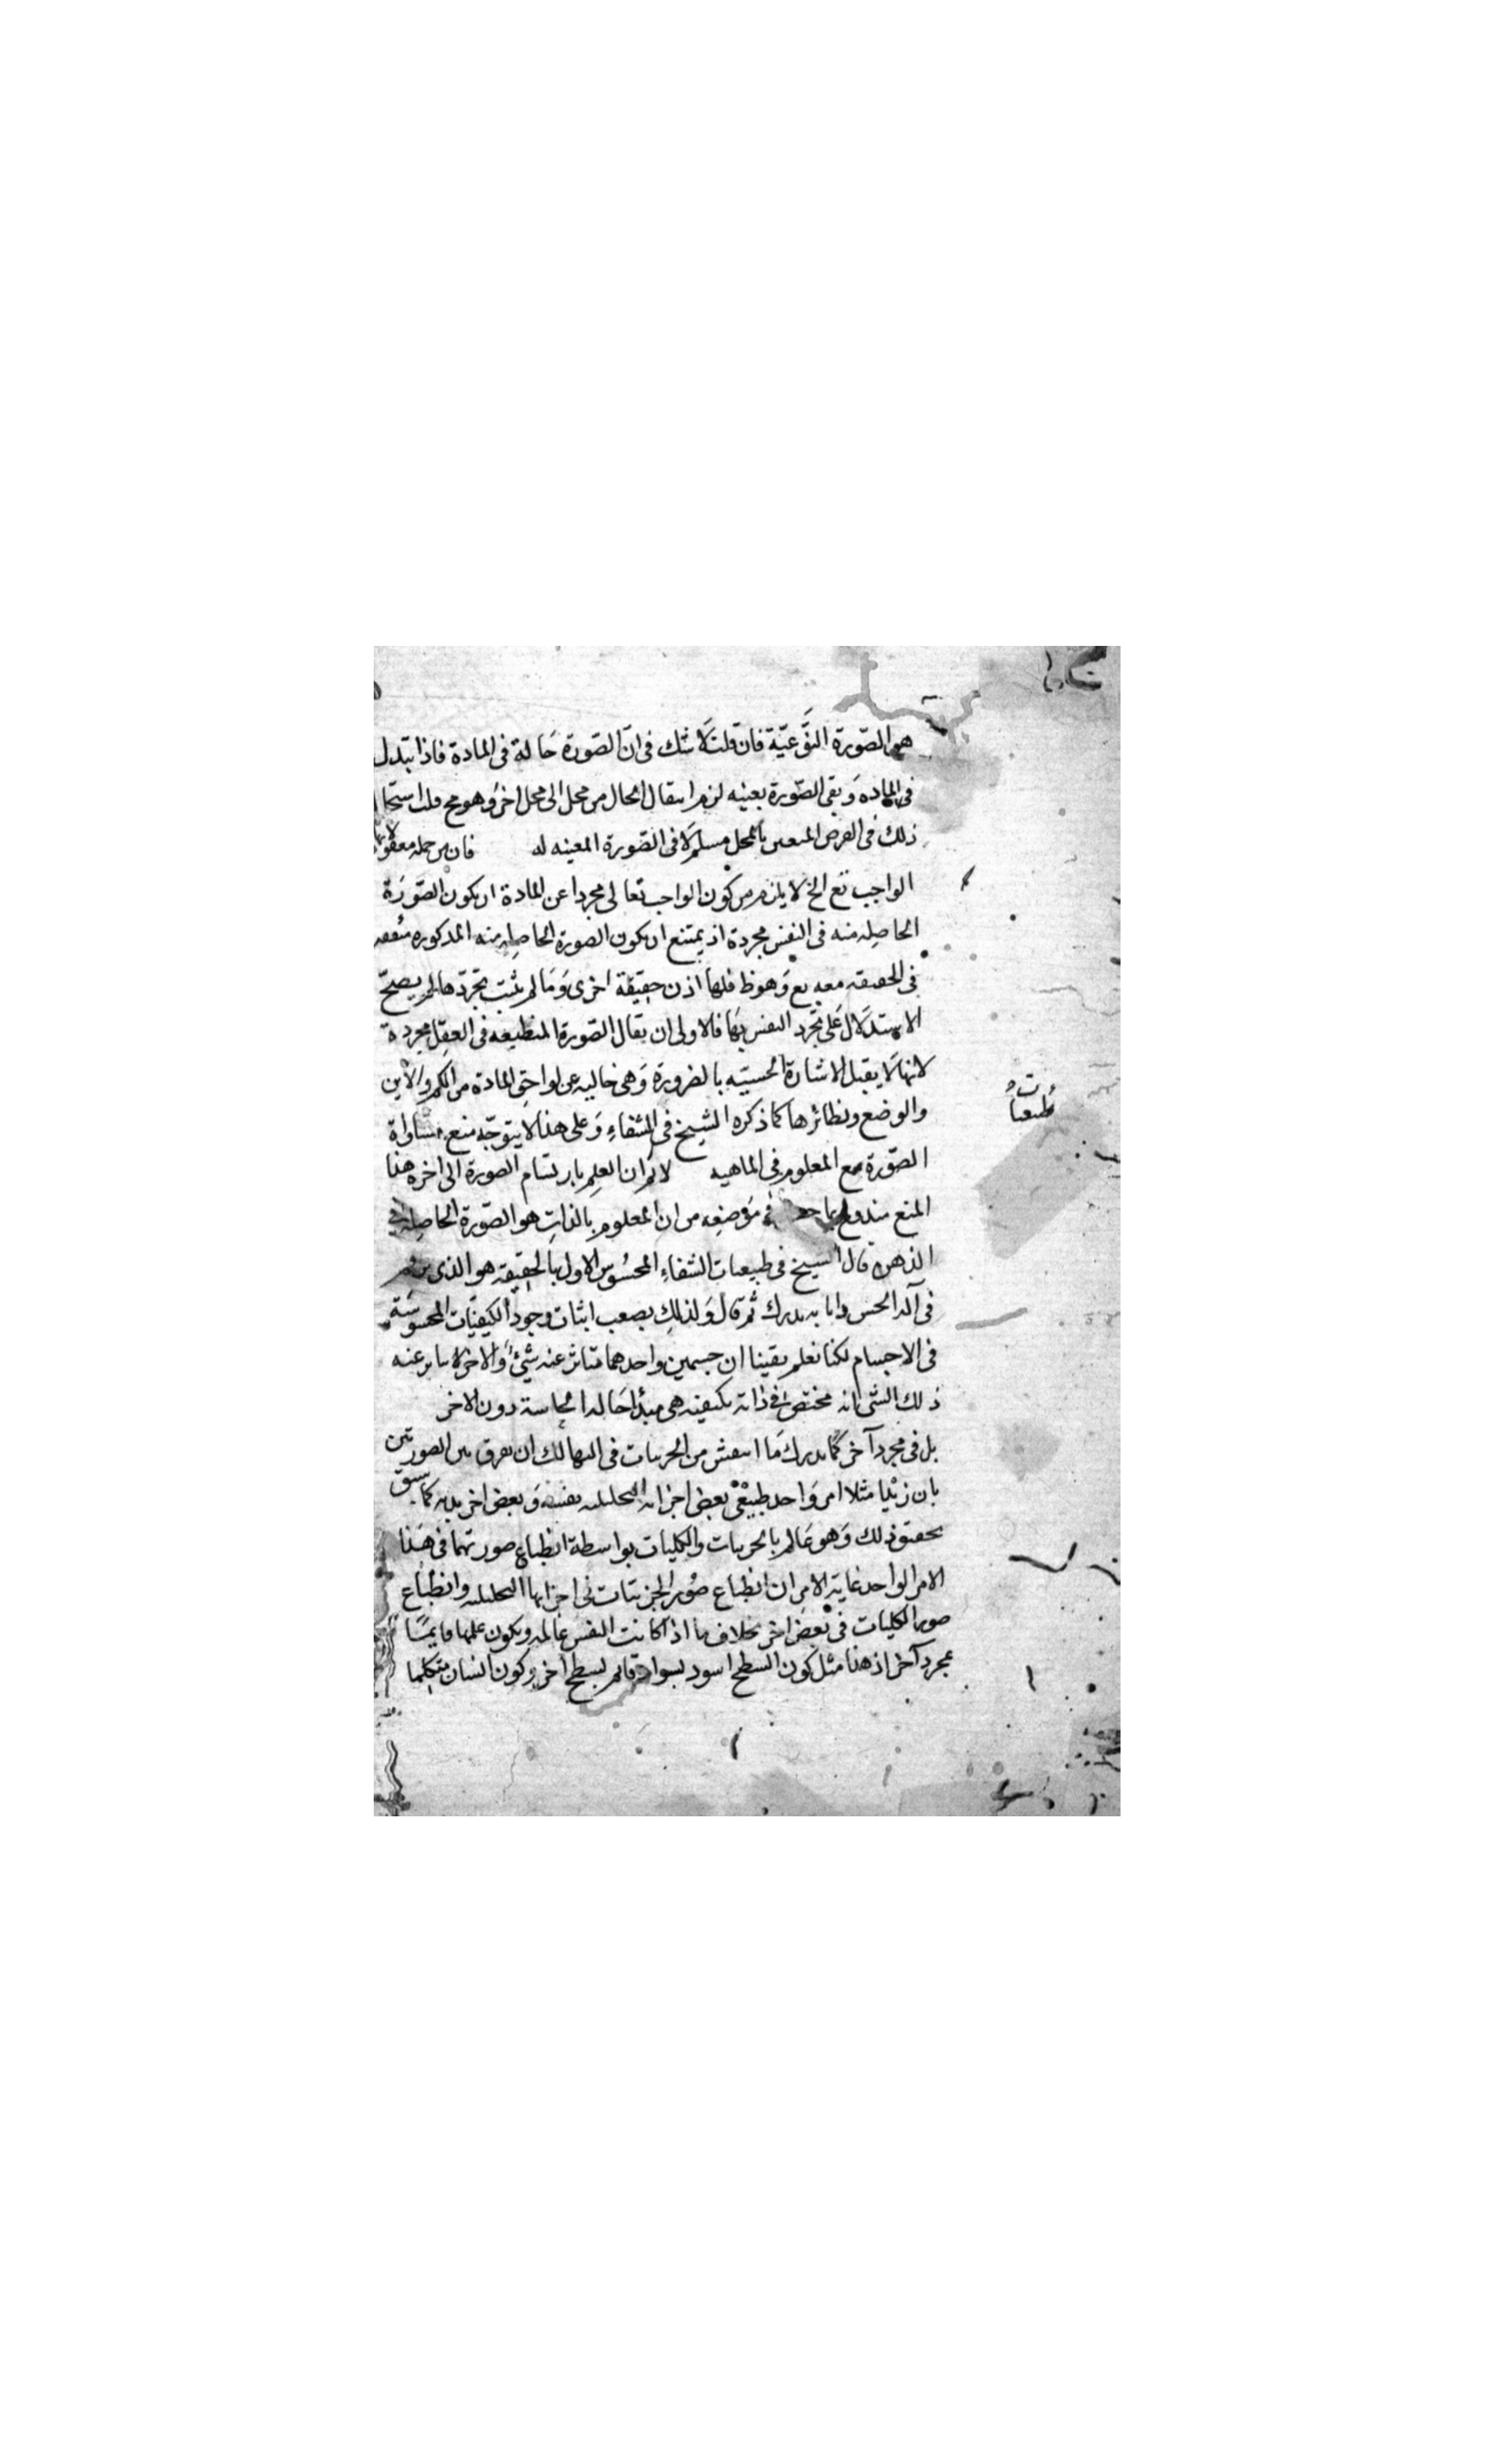 هو الصّورة النّوعيّة فان قلت لا شك فى انّ الصّورة حالة فى المادة فاذا تبدل
فى الماده وبقى الصّورة بعينه لزم انتقال الحال من محل الى محل اخر وهو مح قلت استحا
ذلك فى العرض المتعين بالمحل مسلم لا فى الصّورة المعينه له فان من جمله معقولا
الواجب تع الخ لا يلزم من كون الواجب تعالى مجردا عن المادة ان يكون الصّورة
الحاصله منه فى النفس مجردة اذ يمتنع ان يكون الصورة الحاصله منه المذكوره متفقه
فى الحقيقه معه تع وهو ظ فلها اذن حقيقة اخرى وما لم يثبت تجردها لم يصحّ
الاستدلال على تجرد النفس بها فالاولى ان يقال الصّورة المنطبعه فى العقل مجردة
لانها لا يقبل الاشارة الحسيّه بالضرورة وهى خاليه عن لواحق المادة من الكم والاين
والوضع ونظائرها كما ذكره الشيخ فى الشفاء وعلى هذا لا يتوجّه منع مساواة
طبيعيات
الصّورة مع المعلوم فى الماهيه لا نم ان العلم بارتسام الصورة الى اخره هذا
المنع مندفع بما فى موضعه من ان المعلوم بالذات هو الصّورة الحاصله فى
الذهن قال الشيخ فى طبيعيات الشفاء المحسوس الاول بالحقيقه هو الذى يرتسم
فى آله الحس واياه يدرك ثم قال ولذلك يصعب اثبات وجود الكيفيّات المحسوسة
فى الاجسام لكنا نعلم يقينا ان جسمين واحدهما يتاثر عنه شئ والاخر لا يتاثر عنه
ذلك الشئ انه مختص فى ذاته بكيفيه هى مبدأ احاله الحاسة دون الاخر
بل فى مجرد آخر كما يدرك ما انتقش من الجزئيات فى الها لك ان تفرق بين الصورتين
بان زيدا مثلا امر واحد طبيعى بعض اجزائه التحليليه نفسه وبعض اخر بدنه كما سبق
تحقيق ذلك وهو عالم بالجزئيات والكليات بواسطة انطباع صورتهما فى هذا
الامر الواحد غاية الامر ان انطباع صور الجزئيّات فى اجزائها التحليليه وانطباع
صور الكليات فى بعض اخر بخلاف ما اذا كانت النفس عالمه ويكون علمها قايما
بمجرد آخر اذ هذا مثل كون السطح اسود بسواد قائم بسطح آخر وكون انسان متكلما